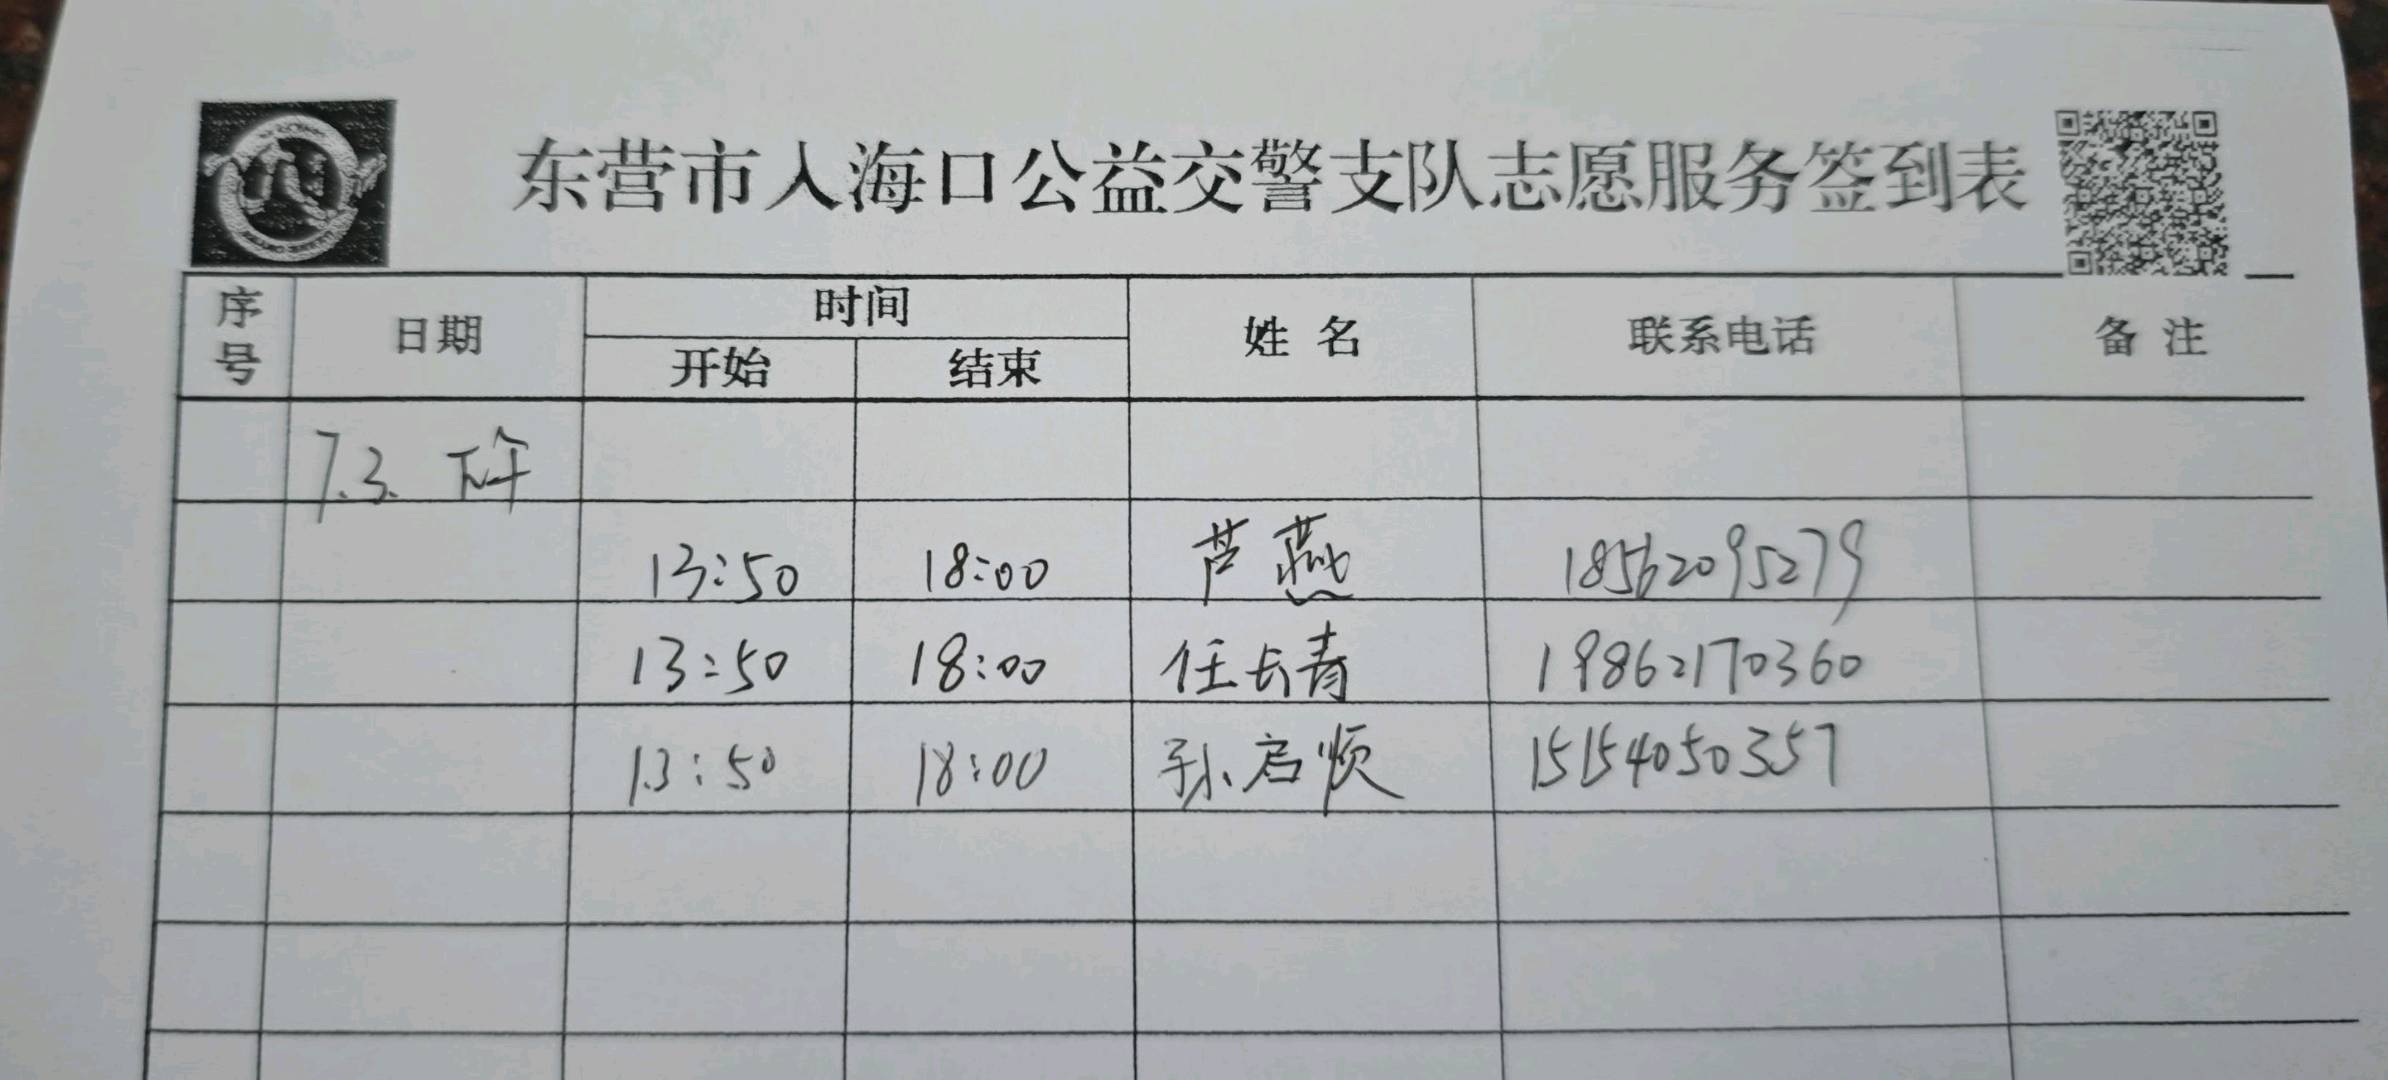 东营市入海口公益交警支队志愿服务签到表
序号 日期 时间 姓名 联系电话 备注
开始 结束
7.3. 下午
13:50 18:00 芦燕 18562095279
13:50 18:00 任长青 19862170360
13:50 18:00 孙启顺 15154050357